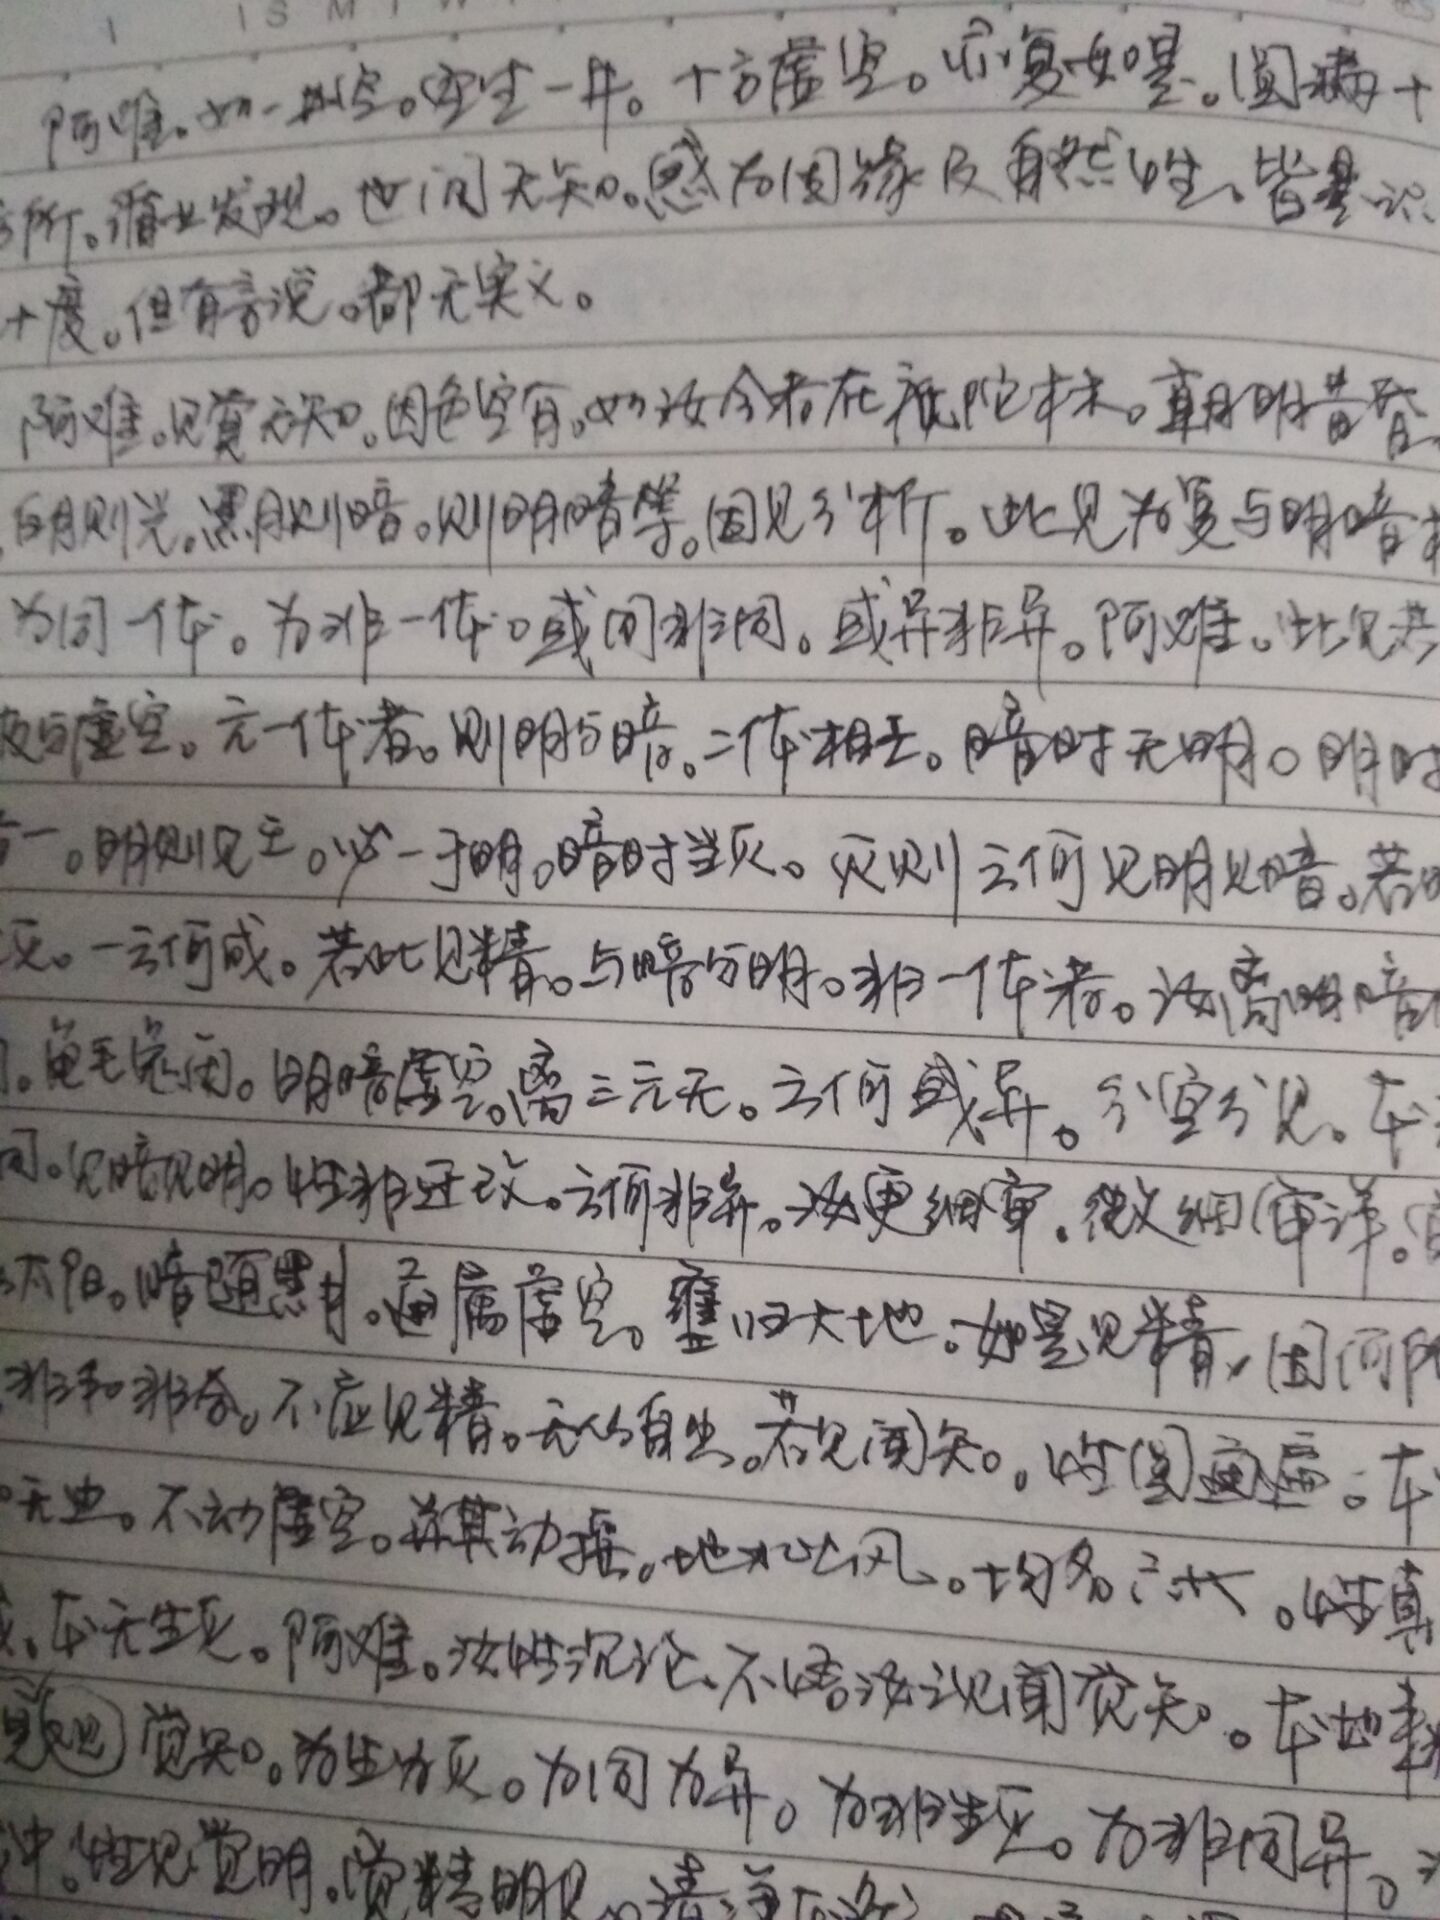 阿难。如一井空。空生一井。十方虚空。亦复如是。圆满十
方所。循业发现。世间无知。惑为因缘及自然性。皆是识
十度。但有言说。都无实义。
阿难。见觉无知。因色空有。如汝今者在祇陀林。朝明昔昏。
白月则光。黑月则暗。则明暗等。因见分析。此见为复与明暗相
为同一体。为非一体。或同非同。或异非异。阿难。此见若
及与虚空。元一体者。则明与暗。二体相亡。暗时无明。明时
一。明则见亡。必一于明。暗时当灭。灭则云何见明见暗。若明
灭。一云何成。若此见精。与暗与明。非一体者。汝离明暗
龟毛兔角。明暗虚空。离三元无。云何或异。分空分见。本
同。见暗见明。性非迁改。云何非异。汝更细审。微细审详。审
太阳。暗随黑月。通属虚空。壅归大地。如是见精。因何所
非和非合。不应见精。无从自出。若见闻知。性圆周遍。本
无边。不动虚空。并其动摇。地水火风。均名六大。性真
本无生灭。阿难。汝性沉沦。不悟汝之见闻觉知。本如来
觉知。为生为灭。为同为异。为非生灭。为非同异。
中。性见觉明。觉精明见。清净本